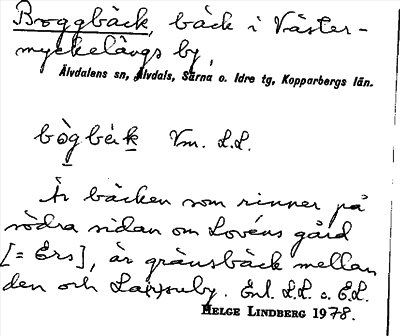 Boggbäck, bäck i Väster-
myckelängs by,
Älvdalens sn, Älvdals, Särna o. Idre tg, Kopparbergs län.
bògbèk Vm. L.L.
Är bäcken som rinner på
södra sidan om Lovéns gård
[= Ers], är gränsbäck mellan
den och Enl. L.L. o. E.L.
HELGE LINDBERG 1978.